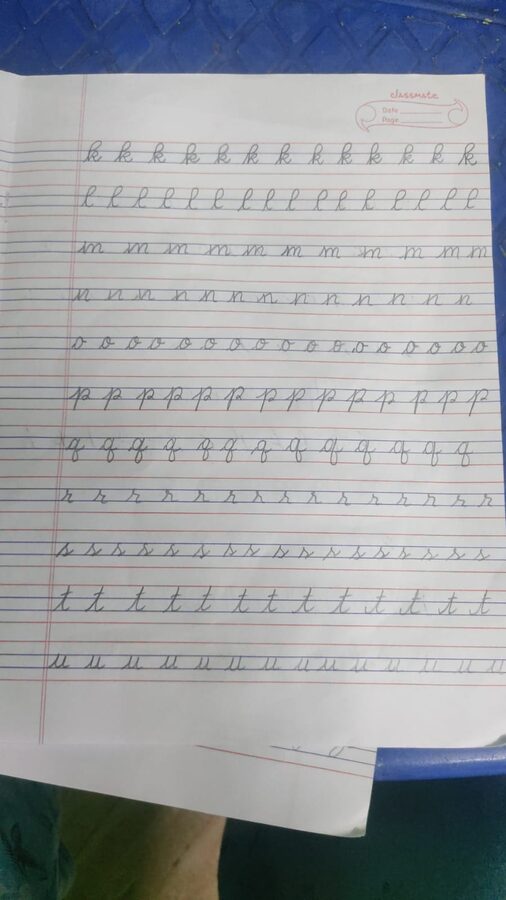 classmate
Date
Page
k k k k k k k k k k k k k
l l l l l l l l l l l l l l l l
m m m m m m m m m m m
n n n n n n n n n n n n n
o o o o o o o o o o o o o o o o o
p p p p p p p p p p p p p
q q q q q q q q q q q q
r r r r r r r r r r r r r r r
s s s s s s s s s s s s s s s s
t t t t t t t t t t t t
u u u u u u u u u u u u u